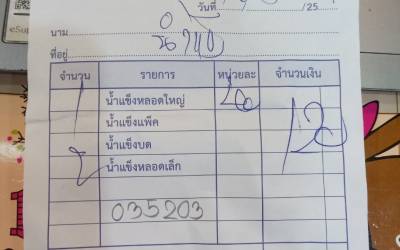 eSu
วันที่ /25
นาม
ที่อยู่
จำนวน รายการ หน่วยละ จำนวนเงิน
น้ำแข็งหลอดใหญ่
น้ำแข็งแพ็ค
น้ำแข็งบด
น้ำแข็งหลอดเล็ก
035203